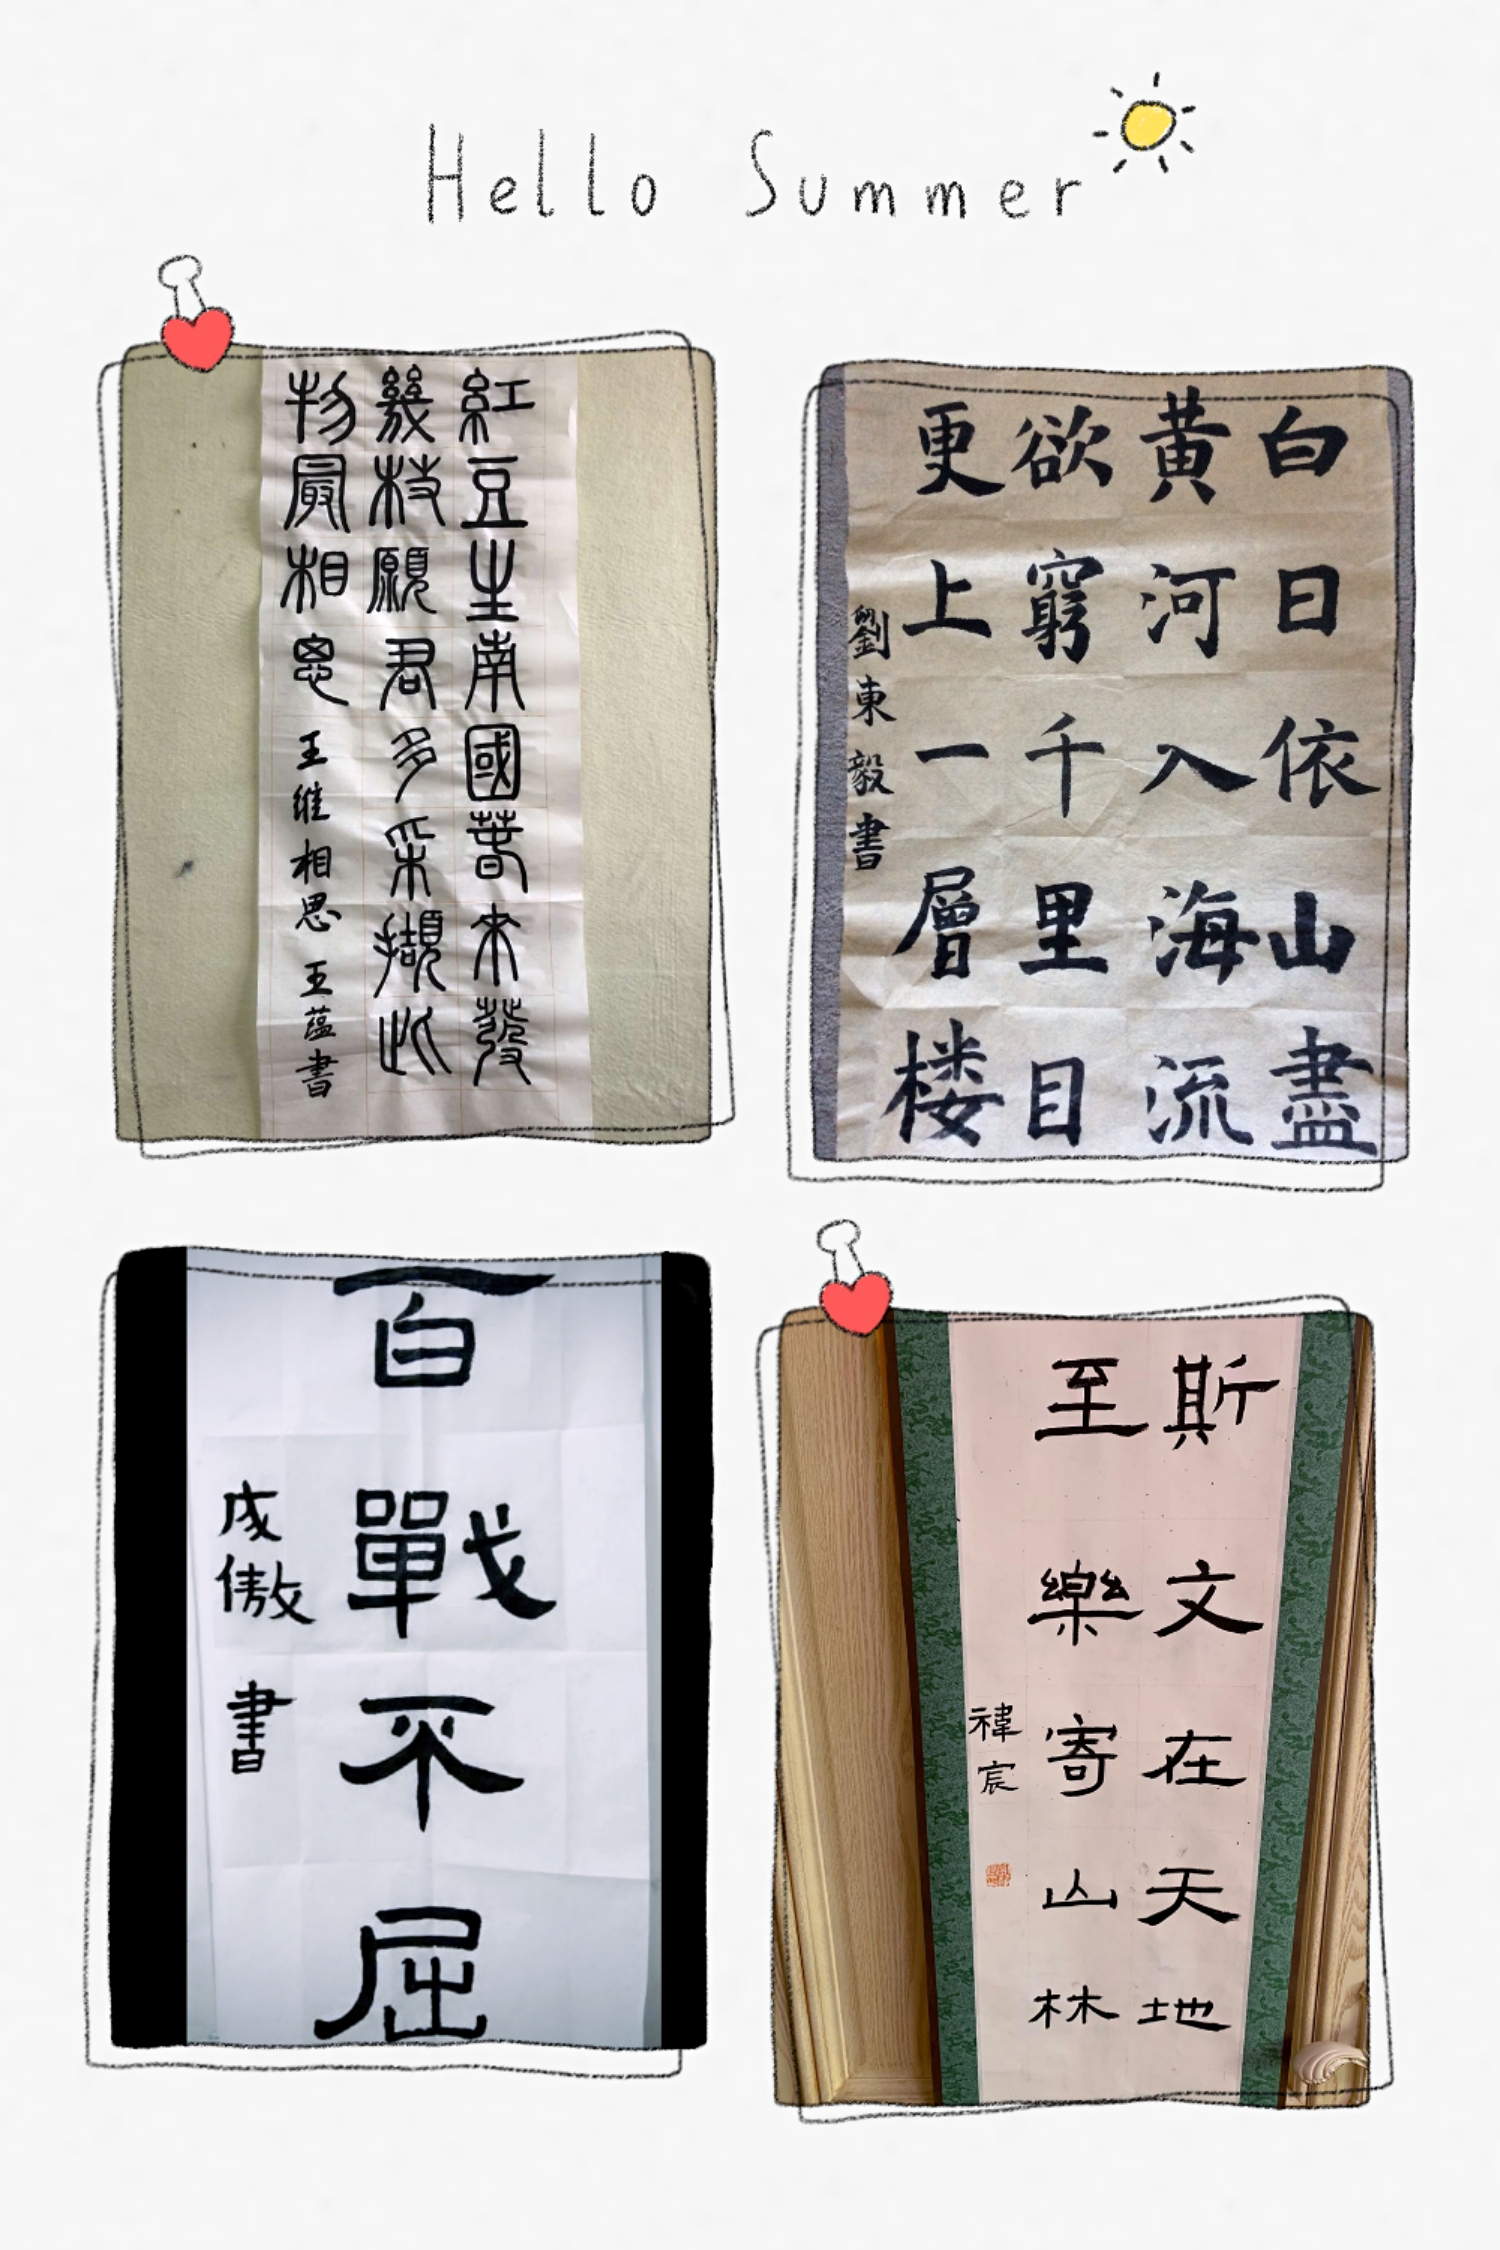 Hello Summer
紅豆生南國春來發
幾枝願君多采擷此
物最相思
王維相思 王蕴書
白日依山盡
黄河入海流
欲窮千里目
更上一層楼
劉東毅書
百戰不屈
成傲書
斯文在天地
至樂寄山林
禕宸